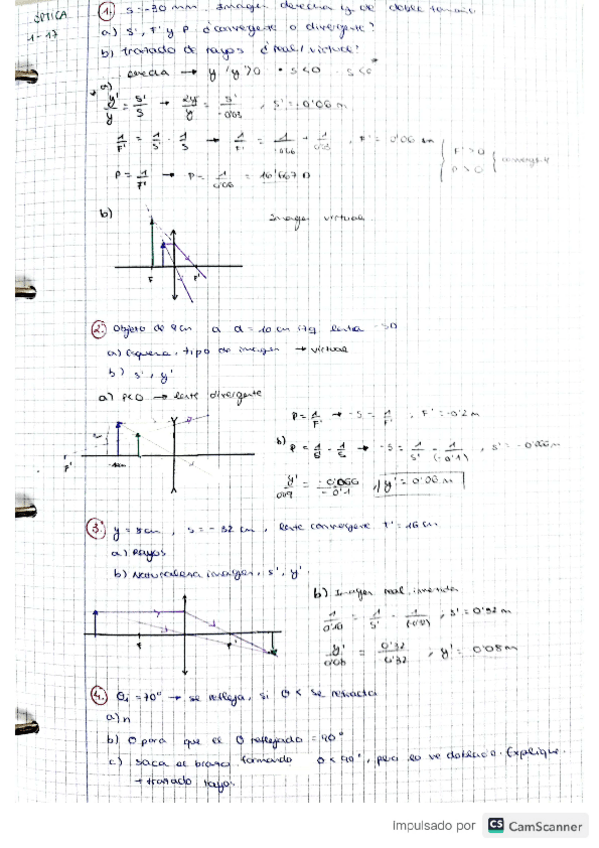 ÓPTICA
1-17
1. s = -30 mm. Imagen derecha y de doble tamaño.
a) s', F' y P ¿convergente o divergente?
b) trazado de rayos ¿real/virtual?
derecha → y'/y > 0 · s < 0
a)
y'/y = s'/s → 2y/y = s'/-0'03, s' = -0'06 m
1/F' = 1/s' - 1/s → 1/F' = 1/-0'06 + 1/0'03, F' = 0'06 m
F' > 0
P > 0
convergente
P = 1/F' → P = 1/0'06 = 16'667 D
b) Imagen virtual
F F'
2. Objeto de 9 cm a d = 10 cm lente -5D
a) Esquema, tipo de imagen → virtual
b) s', y'
a) P<0 → lente divergente
P = 1/F' → -5 = 1/F', F' = -0'2 m
b) P = 1/s' - 1/s → -5 = 1/s' - 1/(-0'1), s' = -0'066 m
y'/0'09 = -0'066/-0'1, y' = 0'06 m
F'
3. y = 8 cm, s = -32 cm, lente convergente F' = 16 cm
a) Rayos
b) Naturaleza imagen, s', y'.
b) Imagen real invertida
F'
4. Θi = 70° → se refleja, si Θ < se refracta
a) n
b) Θ para que el Θ reflejado = 90°
c) Saca el brazo formando Θ < 90°, pero lo ve doblado. Explique.
+ trazado rayos.
Impulsado por CS CamScanner